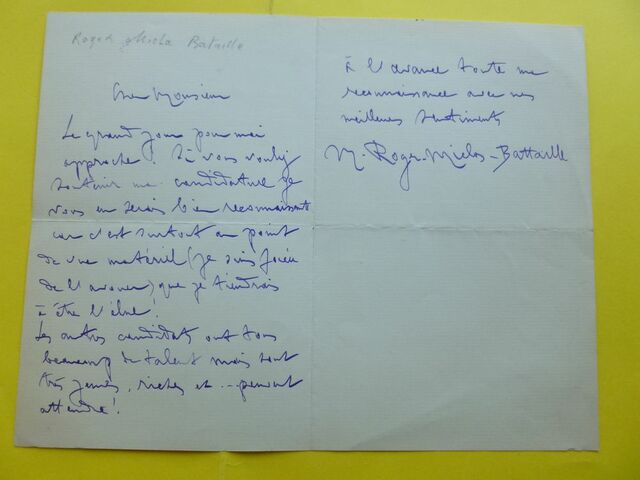 Roger Micla Bataille
Cher Monsieur
Le grand jour pour moi
approche! Si vous voulez
soutenir ma candidature je
vous en serais bien reconnaissante
car c'est surtout au point
de vue matériel (je suis
de l'avouer) que je tiendrais
à être l'élue!
Les autres candidats ont tous
beaucoup de talent mais sont
très jeunes, riches et ... peuvent
attendre!
à l'avance toute ma
reconnaissance avec mes
meilleurs sentiments
M. Roger-Miclos-Battaille